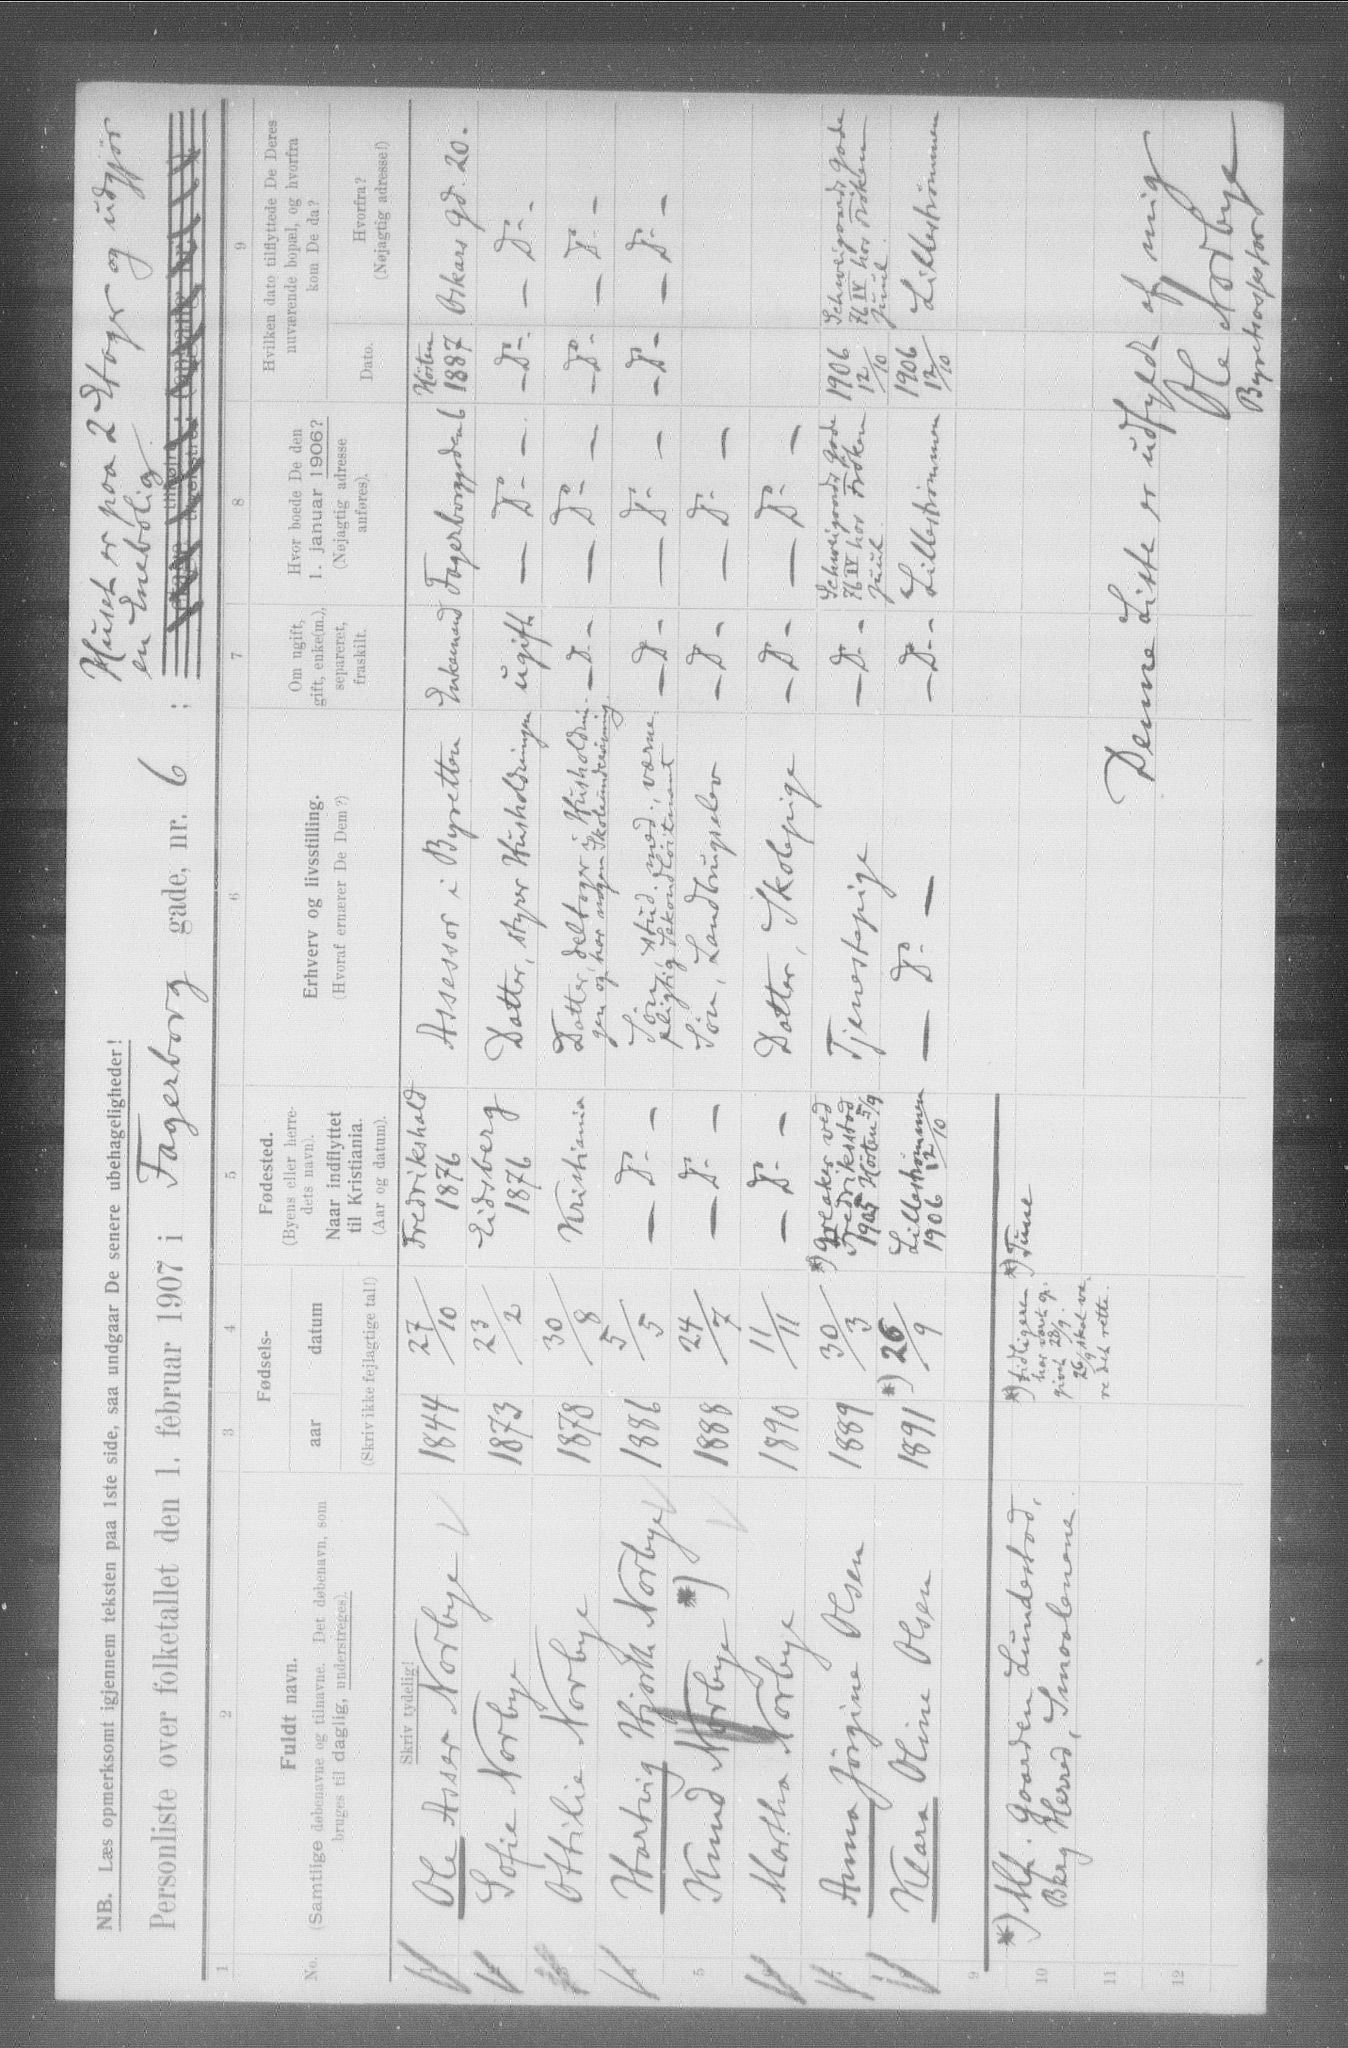 NB. Læs opmerksomt igjennem teksten paa 1ste side, saa undgaar De senere ubehageligheder!
Huset er paa 2 Etager og udgjør
en Enebolig
Personliste over folketallet den 1. februar 1907 i Fagerborg gade, nr. 6 ;
1 2 3 4 5 6 7 8 9
No.
Fuldt navn.
(Samtlige døbenavne og tilnavne. Det døbenavn, som
bruges til daglig, understreges).
Fødsels-
aar datum
(Skriv ikke fejlagtige tal!)
Fødested.
(Byens eller herre-
dets navn).
Naar indflyttet
til Kristiania.
(Aar og datum).
Erhverv og livsstilling.
(Hvoraf ernærer De Dem?)
Om ugift,
gift, enke(m.),
separeret,
fraskilt.
Hvor boede De den
1. januar 1906?
(Nøjagtig adresse
anføres).
Hvilken dato tilflyttede De Deres
nuværende bopæl, og hvorfra
kom De da?
Dato.
Hvorfra?
(Nøjagtig adresse!)
Skriv tydelig!
Ole Asser Norbye 1844 27/10 Fredrikshald 1876 Assessor i Byretten Enkemand Fagerborggaden 6 Hösten 1887 Oskars gd. 20.
Sofie Norbye 1873 23/2 Eidsberg 1876 Datter, styrer Husholdningen ugift — Do — — Do — — Do —
Ottilie Norbye 1878 30/8 Kristiania Datter, deltager i Husholdnin-
gen og har nogen Skoleundervisning — Do — — Do — — Do — — Do —
Hartvig Hjorth Norbye 1886 5/5 — Do — Søn, stud. med., værne-
pligtig Sekondløitnant — Do — — Do — — Do — — Do —
5 Knud Norbye *) 1888 24/7 — Do — Søn, Landbrugselev — Do — — Do —
Martha Norbye 1890 11/11 — Do — Datter, Skolepige — Do — — Do —
Anna Jørgine Olsen 1889 30/3 *) Greaker ved
Fredriksstad
1905 Hösten 5/9 Tjenestepige — Do — Schweigaards Gade
76 IV hos Frøken
Juul 1906 12/10 Schweigaards Gade
76 IV hos Frøken
Juul.
Klara Oline Olsen 1891 *) 26/9 Lillestrømmen
1906 12/10 — Do — — Do — Lillestrømmen 1906 12/10 Lillestrømmen
9
10 *) Mdl. Gaarden Lundestad,
Berg Herred, Smaalenene.
*) tidligere
har været op-
givet 28/9.
26/9 skal væ-
re det rette.
*) Tune
11
12
Denne Liste er udfyldt af mig
Ole Norbye
Byretsassessor